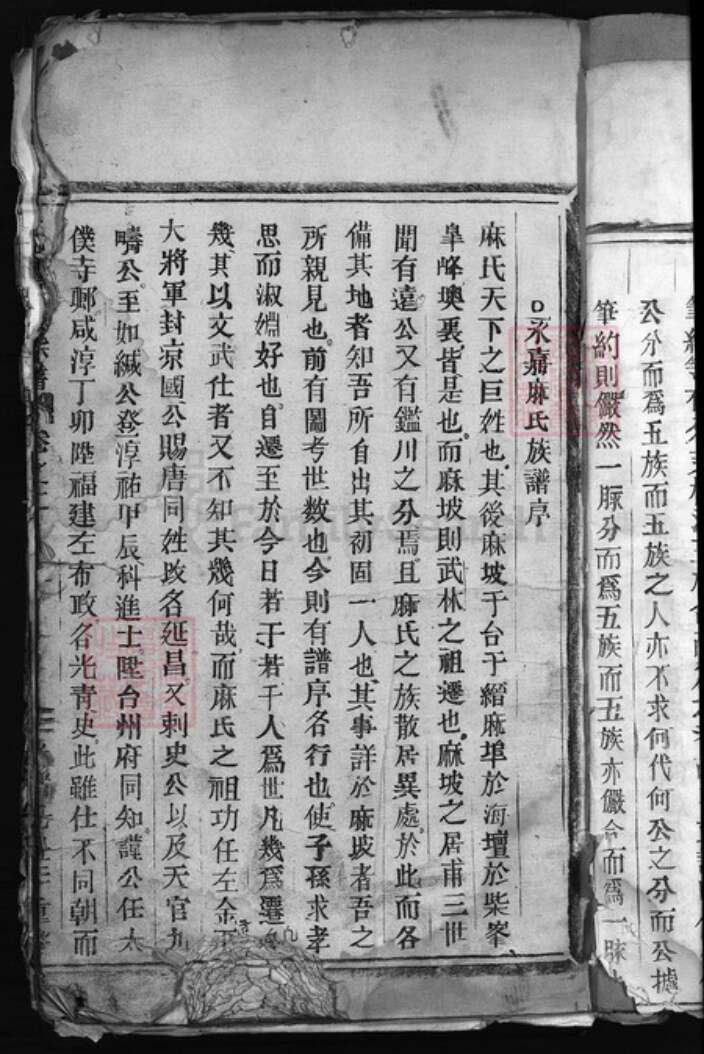 公分而爲五族而五族之人亦不求何代何公之分而公據
筆約則儼然一脉分而爲五族而五族亦儼合而爲一脉
永嘉麻氏族譜序
麻氏天下之巨姓也其後麻坡于台于縉麻埠於海壇於柴峯
皐峰墺裏皆是也而麻坡則武林之祖遷也麻坡之居甫三世
聞有遠公又有鑑川之分焉且麻氏之族散居異處於此而各
備其地者知吾所自出其初固一人也其事詳於麻坡者吾之
所親見也前有圖考世数也今則有譜序名行也使子孫求孝
思而淑嫺好也自遷至於今日若于若干人爲世凡幾爲遷
幾其以文武仕者又不知其幾何哉而麻氏之祖功任左金
大將軍封凉國公賜唐同姓改名延昌又刺史公以及天官九
疇公至如緘公登淳祐甲辰科進士陞台州府同知謹公任太
僕寺鄉咸淳丁卯陞福建左布政名光青史此雖仕不同朝而